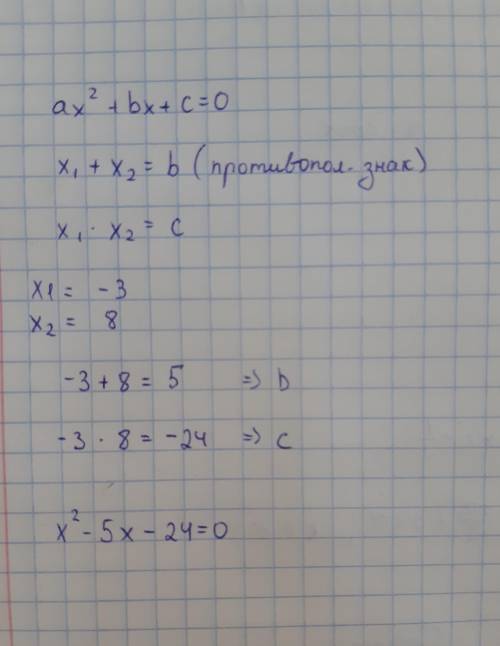 ax² + bx + c = 0
x₁ + x₂ = b (противопол. знак)
x₁ · x₂ = c
x1 = -3
x₂ = 8
-3 + 8 = 5 => b
-3 · 8 = -24 => c
x² - 5x - 24 = 0